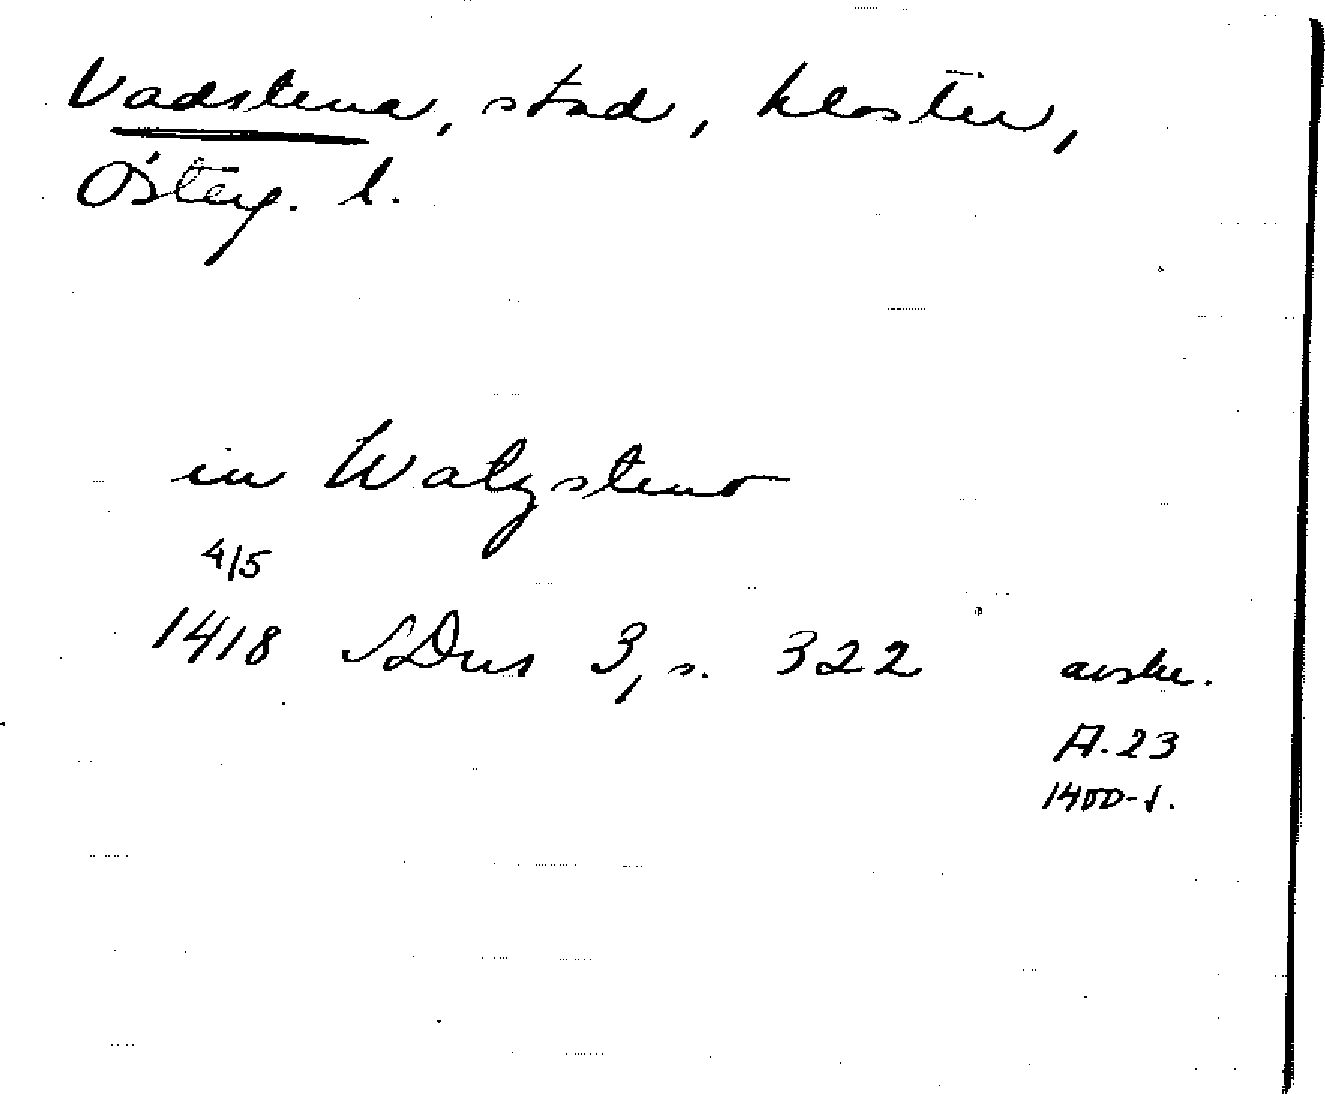 Vadstena, stad, kloster,
Österg. l.
in Watzsteno
4/5
1418 SDns 3, s. 322 avskr.
A. 23
1400-t.